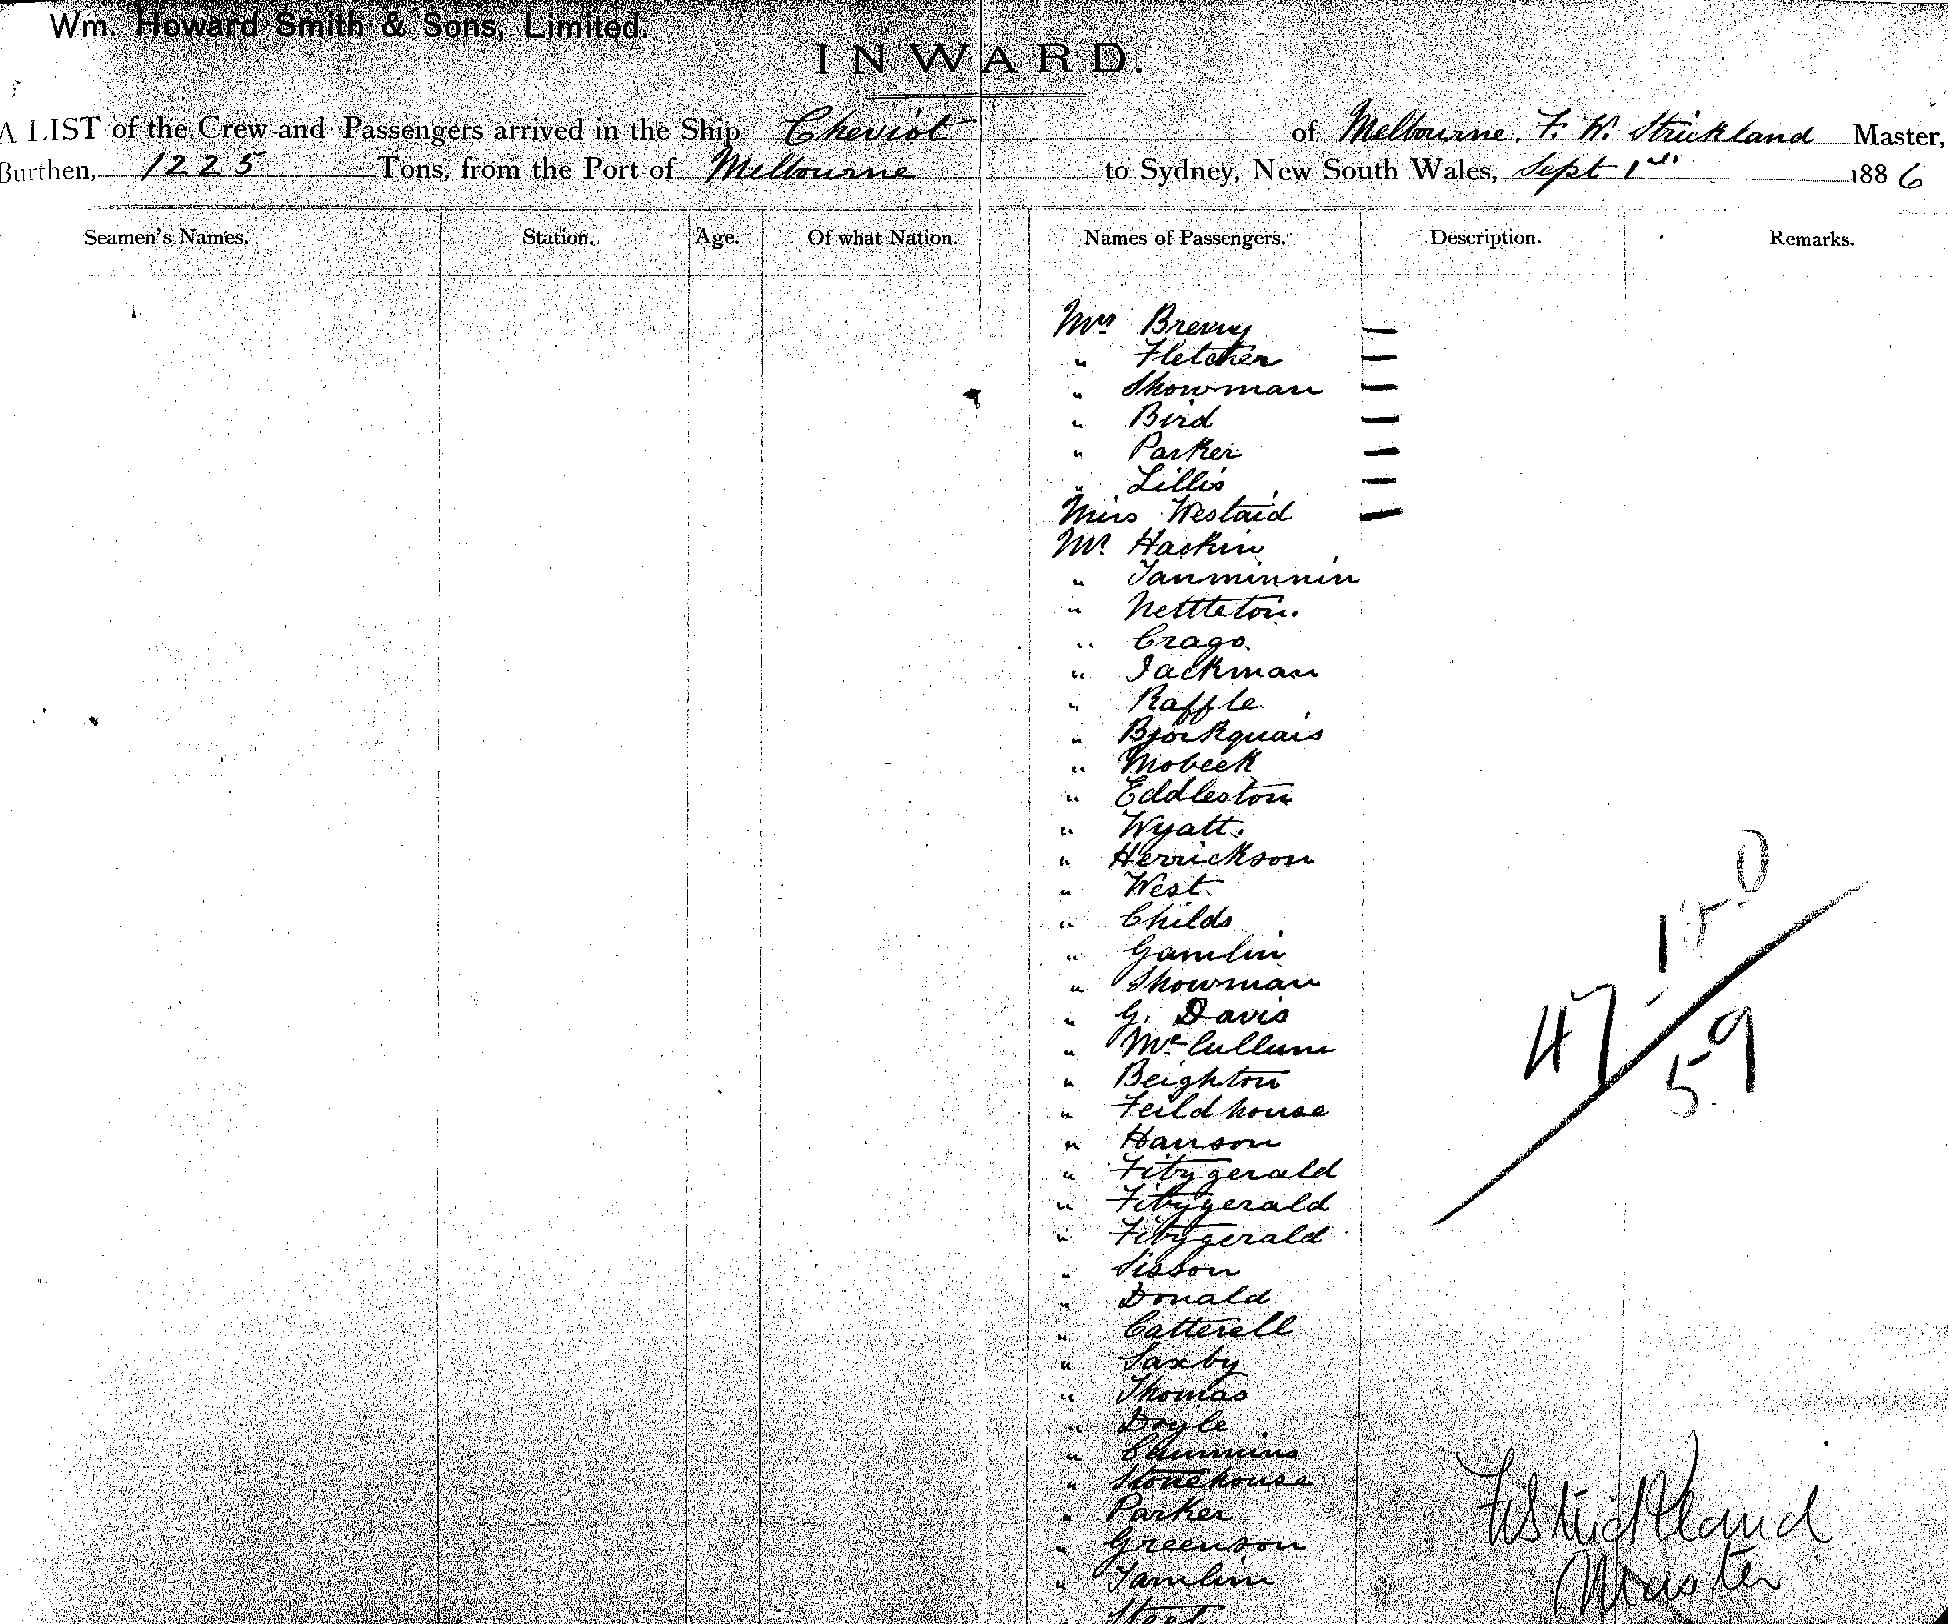 Wm. Howard Smith & Sons, Limited.
INWARD.
A LIST of the Crew and Passengers arrived in the Ship Cheviot of Melbourne, F. W. Strickland Master,
Burthen, 1225 Tons, from the Port of Melbourne to Sydney, New South Wales, Sept 1st 1886
Seamen's Names. Station. Age. Of what Nation. Names of Passengers. Description. Remarks.
Mrs —
" Fletcher —
" Showman —
" Bird —
" Parker —
" Lillis —
Miss Westaid —
Mr Haskin
" Tanminnin
" Nettleton.
" Crago.
" Jackman
" Raffle
" Bjorkquais
" Mobeck
" Eddleston
" Wyatt.
" Herrickson
" West.
" Childs
" Gamlin
" Showman
" G. Davis
" McCullum
" Beighton
" Feildhouse
" Hanson
" Fitzgerald
" Fitzgerald
" Fitzgerald
" Sisson
" Donald
" Catterell
" Saxby
" Thomas
" Doyle
" Stonehouse
" Parker
" Greenson
" Tamlin
47
59
FWStrickland
Master